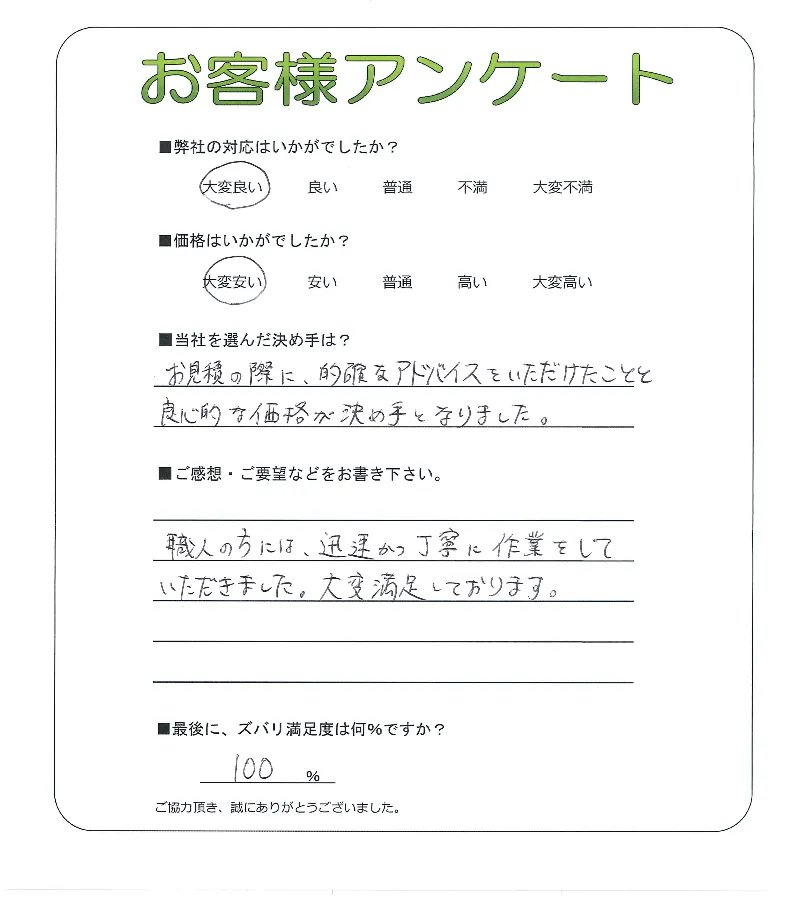 お客様アンケート
■弊社の対応はいかがでしたか？
大変良い 良い 普通 不満 大変不満
■価格はいかがでしたか？
大変安い 安い 普通 高い 大変高い
■当社を選んだ決め手は？
お見積の際に、的確なアドバイスをいただけたことと
良心的な価格が決め手となりました。
■ご感想・ご要望などをお書き下さい。
職人の方には、迅速かつ丁寧に作業をして
いただきました。大変満足しております。
■最後に、ズバリ満足度は何%ですか？
100 %
ご協力頂き、誠にありがとうございました。